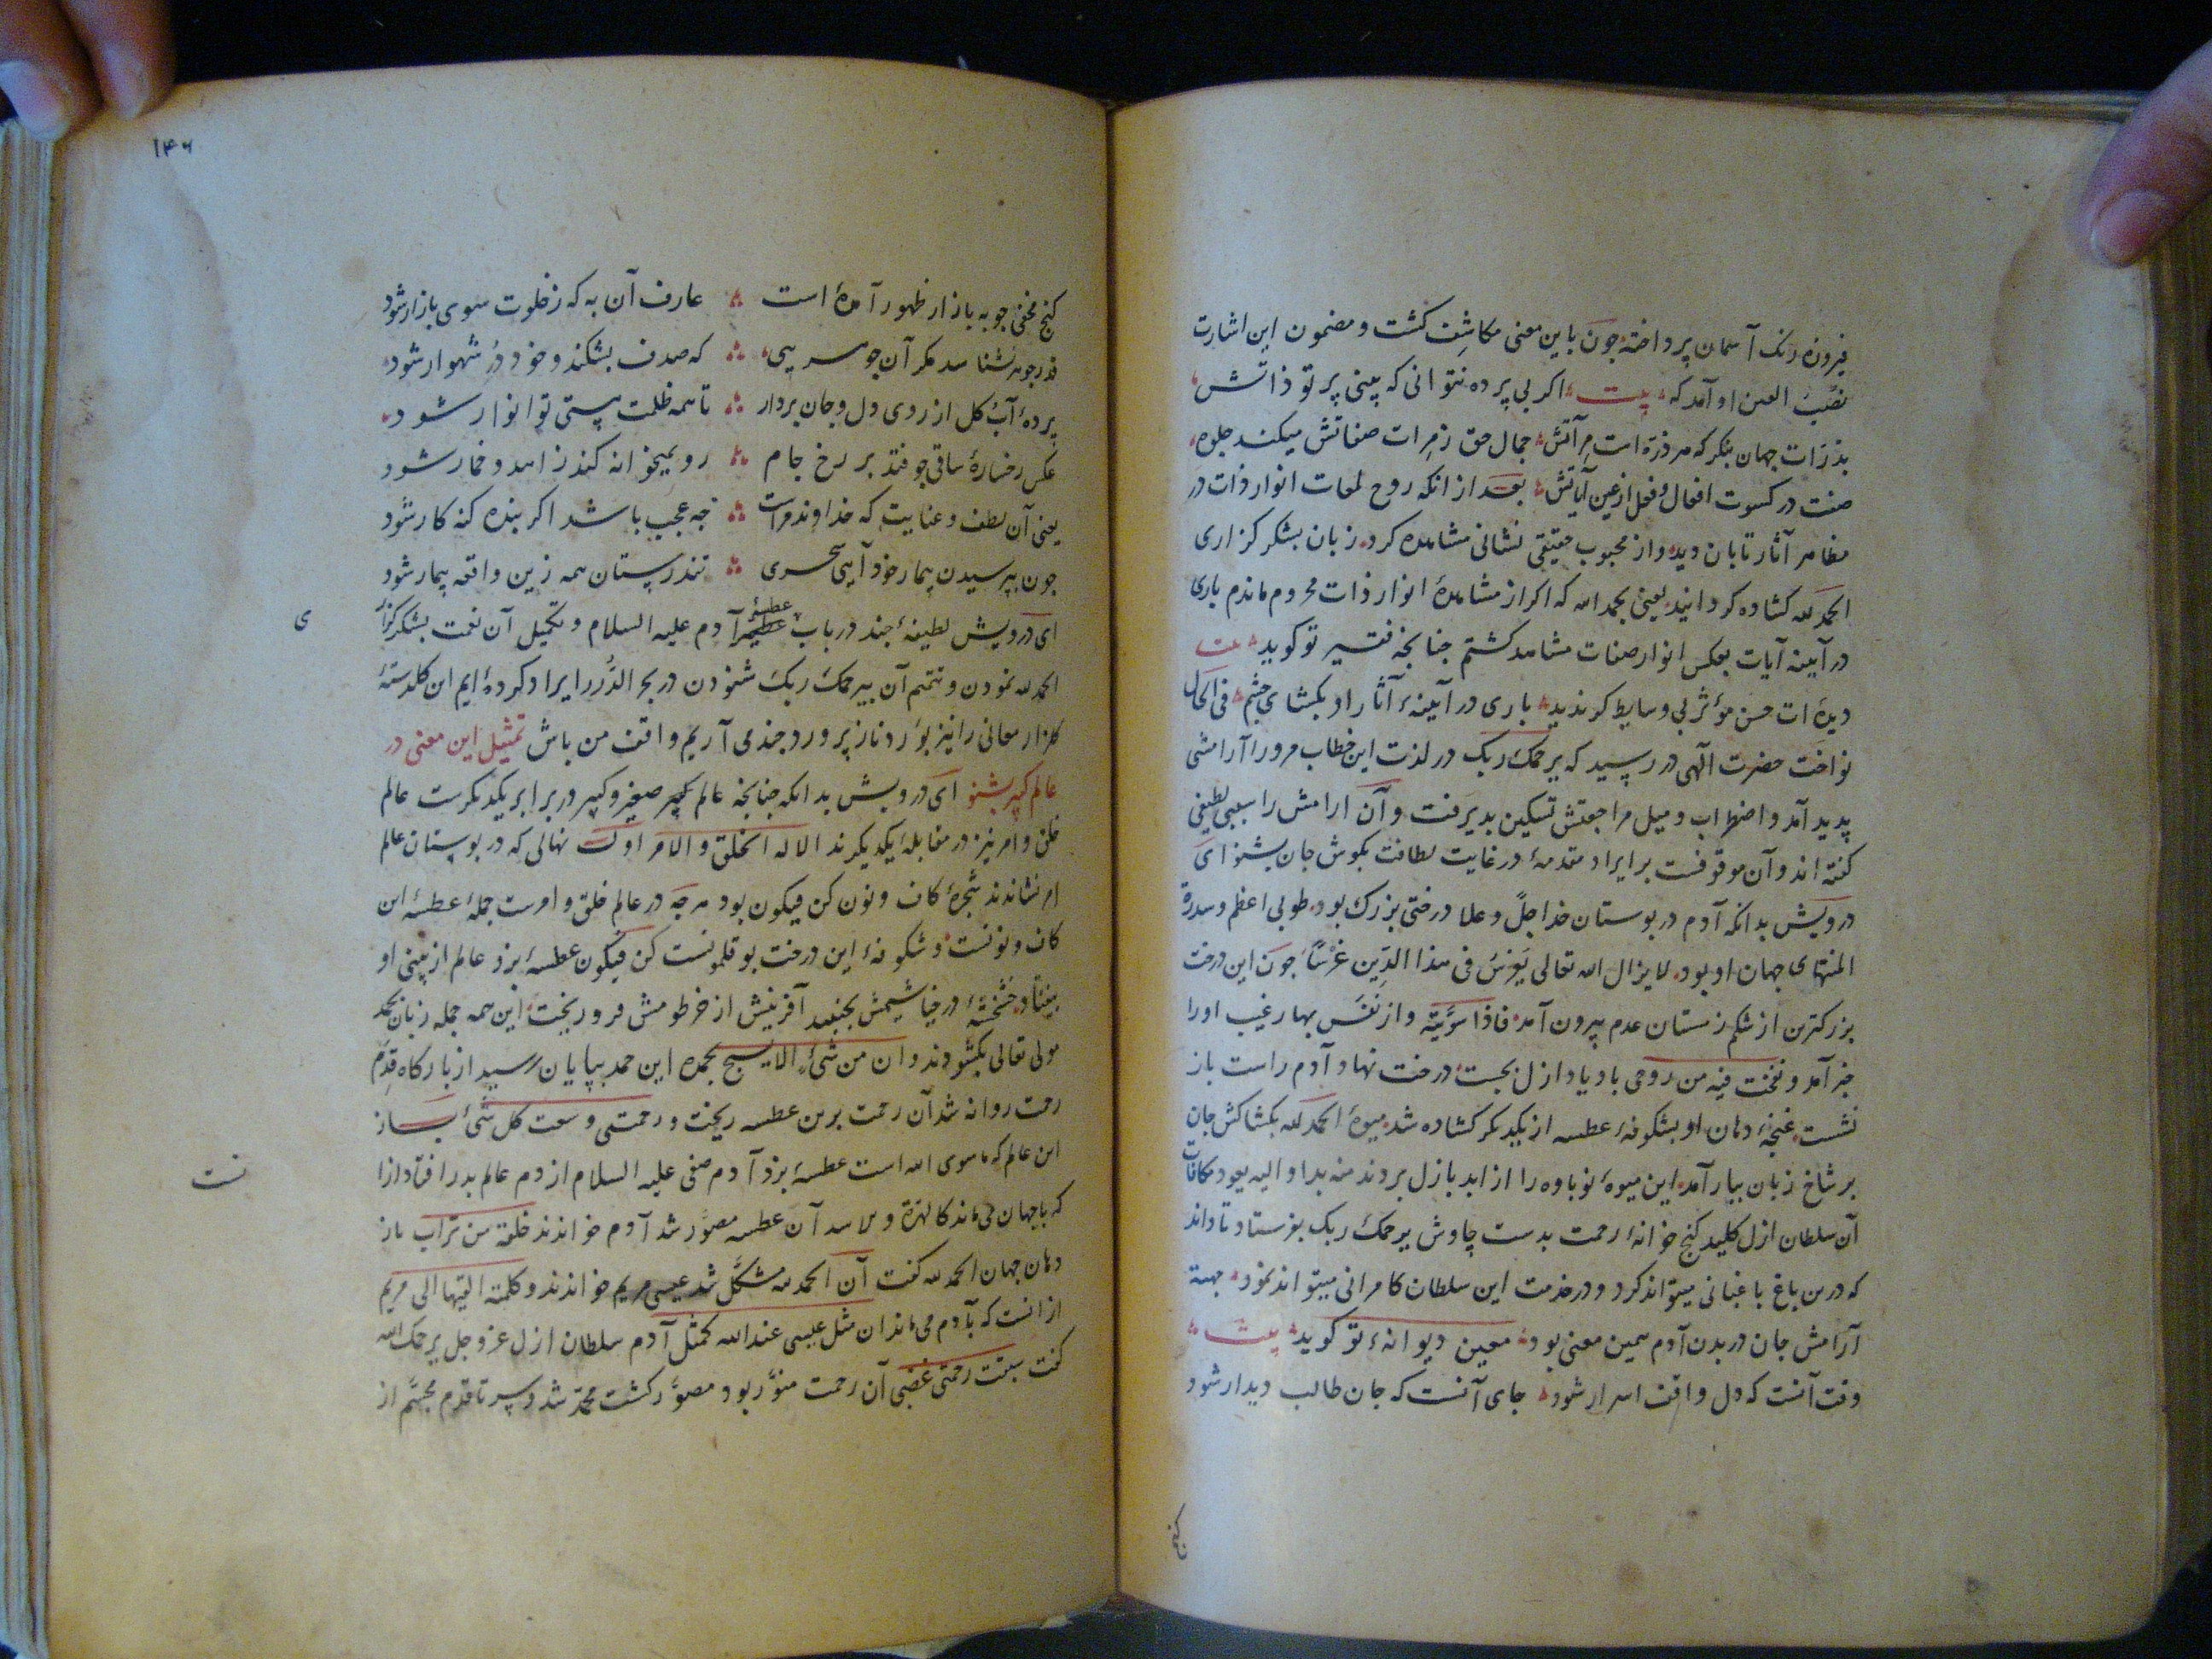 فیروزه رنک آسمان پرداخته جون باین معنی مکاشِف کشت و مضمون این اشارت
نصُبَ العین او آمد که بیت اکر بی پرده نتوانی که بینی پرتو ذاتش
بذرات جهان بنکر که هر ذره است مرآتش جمال حق ز مرات صفاتش میکند جلوه
صفت در کسوت افعال و فعل از عین آیاتش بعد از انکه روح لمعات انوار ذات در
مظاهر آثار تابان دید و از محبوب حقیقی نشانی مشاهده کرد زبان بشکر کزاری
الحمد لله کشاده کردانید یعنی بحمد الله که اکر از مشاهدهٔ انوار ذات محروم ماندم باری
در آیینه آیات بعکس انوار صفات مشاهد کشتم جنانجه فقیر تو کوید بیت
دیدهٔ ات حسن مؤثر بی وسایط کر ندید باری در آیینهٔ آثار او بکشای چشم فی الحال
نواخت حضرت الهی در رسید که یرحمک ربک در لذت این خطاب مرورا آرامشی
پدید آمد و اضطراب و میل مراجعتش تسکین بدیرفت و آن ارامش را سببی لطیفی
کفته اند و آن موقوفست بر ایراد مقدمهٔ در غایت لطافت بکوش جان بشنو ای
درویش بدانکه آدم در بوستان خدا جلّ و علا درختی بزرک بود طوبی اعظم و سدرة
المنتهای جهان او بود لایزال الله تعالی یَغرِسُ فی هذا الدِّین غرسًا جون این درخت
بزرکترین از شکم زمستان عدم بیرون آمد فاذا سوّیته و از نفَس بهار غیب اورا
خبر آمد و نفخت فیه من روحی باد یاد ازل بجست درخت نهاد آدم راست باز
نشست غنچهٔ دهان او بشکوفهٔ عطسه از یکدیکر کشاده شد میوهٔ الحمد لله بکشاکش جان
بر شاخ زبان ببار آمد این میوهٔ نوباوه را از ابد بازل بردند منه بدا و الیه یعود مکافات
آن سلطان ازل کلید کنج خزانهٔ رحمت بدست چاوش یرحمک ربک بفرستاد تا داند
که درین باغ باغبانی میتواند کرد و در خدمت این سلطان کامرانی میتواند نمود جهة
آرامش جان در بدن آدم همین معنی بود معین دیوانهٔ تو کوید بیت
وقت آنست که دل واقف اسرار شود جای آنست که جان طالب دیدار شود
کنج
۱۴۶
کنج مخفی جو به بازار ظهور آمدهٔ است عارف آن به که ز خلوت سوی بازار شود
قدر جوهر نشناسد مکر آن جوهریی که صدف بشکند و خود دُر شهوار شود
پردهٔ آب کل از روی دل و جان بردار تا همه ظلمت هستی تو انوار شود
عکس رخسارهٔ ساقی جو فتد بر رخ جام رو بمیخوانه کند زاهد و خمار شود
یعنی آن لطف و عنایت که خداوند مراست چه عجب باشد اکر بنده کنه کار شود
جون بپرسیدن بیمار خود آیی سحری تندرستان همه زین واقعه بیمار شود
ای درویش لطیفهٔ جند در باب عطسهٔ آدم علیه السلام و تکمیل آن نعمت بشکر کزار
ی
الحمد لله نمودن و تتمیم آن بیرحمک ربک شنودن در بحر الدُّرر ایراد کردهٔ ایم این کلدستهٔ
کلزار معانی را نیز بورد ناز پرورد جند می آریم واقف من باش تمثیل این معنی در
عالم کبیر بشنو ای درویش بدانکه جنانجه عالم صغیر و کبیر در برابر یکدیکرست عالم
خلق و امر نیز در مقابلهٔ یکدیکرند الا له الخلق و الامر اوک نهالی که در بوستان عالم
امر نشاندند شجرهٔ کاف و نون کن فیکون بود هرجه در عالم خلق و امرست جملهٔ عطسهٔ این
کاف و نونست و شکوفهٔ این درخت بوقلمونست کن فیکون عطسهٔ بزد عالم از بینی او
بیفتاد در خیاشیمش بجنبید آفرینش از خرطومش فرو ریخت این همه جمله زبان بحمد
مولی تعالی بکشودند و ان من شئٍ الا یسبح بحمده این حمد بپایان رسید از بارکاه قِدَم
رحمت روانه شد آن رحمت برین عطسه ریخت و رحمتی وسعت کل شئ باز
این عالم که ماسوی الله است عطسهٔ بزد آدم صفی علیه السلام از دم عالم بدر افتاد ازا
نست
که باجهان می ماند آن عطسه مصوَّر شد آدم خواندند خلقه من تراب باز
دهان جهان الحمد لله کفت آن الحمد لله مشکّل شد عیسی مریم خواندند و کلمته القیها الی مریم
ازانست که بآدم می ماند ان مثل عیسی عند الله کمثل آدم سلطان ازل عز و جل یرحمک الله
کفت سبقت رحمتی غضبی آن رحمت منوَّر بود مصوَّر کشت محمّد شد و سر تا قدم مجسّم از